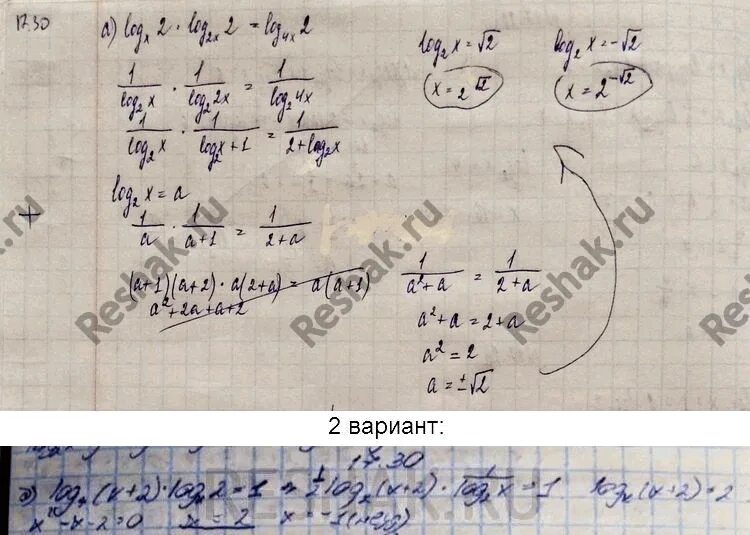 17.30 а) logₓ2 · log₂ₓ2 = log₄ₓ2
1/log₂x · 1/log₂2x = 1/log₂4x
1/log₂x · 1/(log₂x+1) = 1/(2+log₂x)
log₂x = a
1/a · 1/(a+1) = 1/(2+a)
(a+1)(a+2) · a(2+a) = a(a+1)
a²+2a+a+2
1/(a²+a) = 1/(2+a)
a²+a = 2+a
a² = 2
a = ±√2
log₂x = √2
x = 2^√2
log₂x = -√2
x = 2^-√2
Reshak.ru
Reshak.ru
Reshak.ru
2 вариант:
17.30
(x+2) · 2 = 1 1/2 log₂(x+2) · 1/log₂x = 1 (x+2) = 2
-x-2=0 x = 2 x = -1
RESHAK.RU